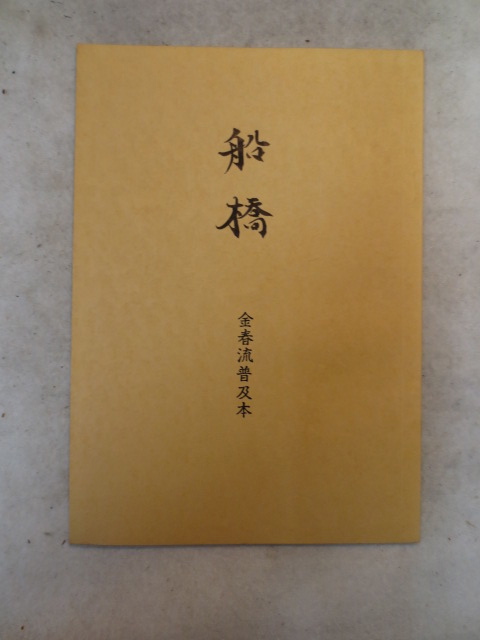 船橋
金春流普及本